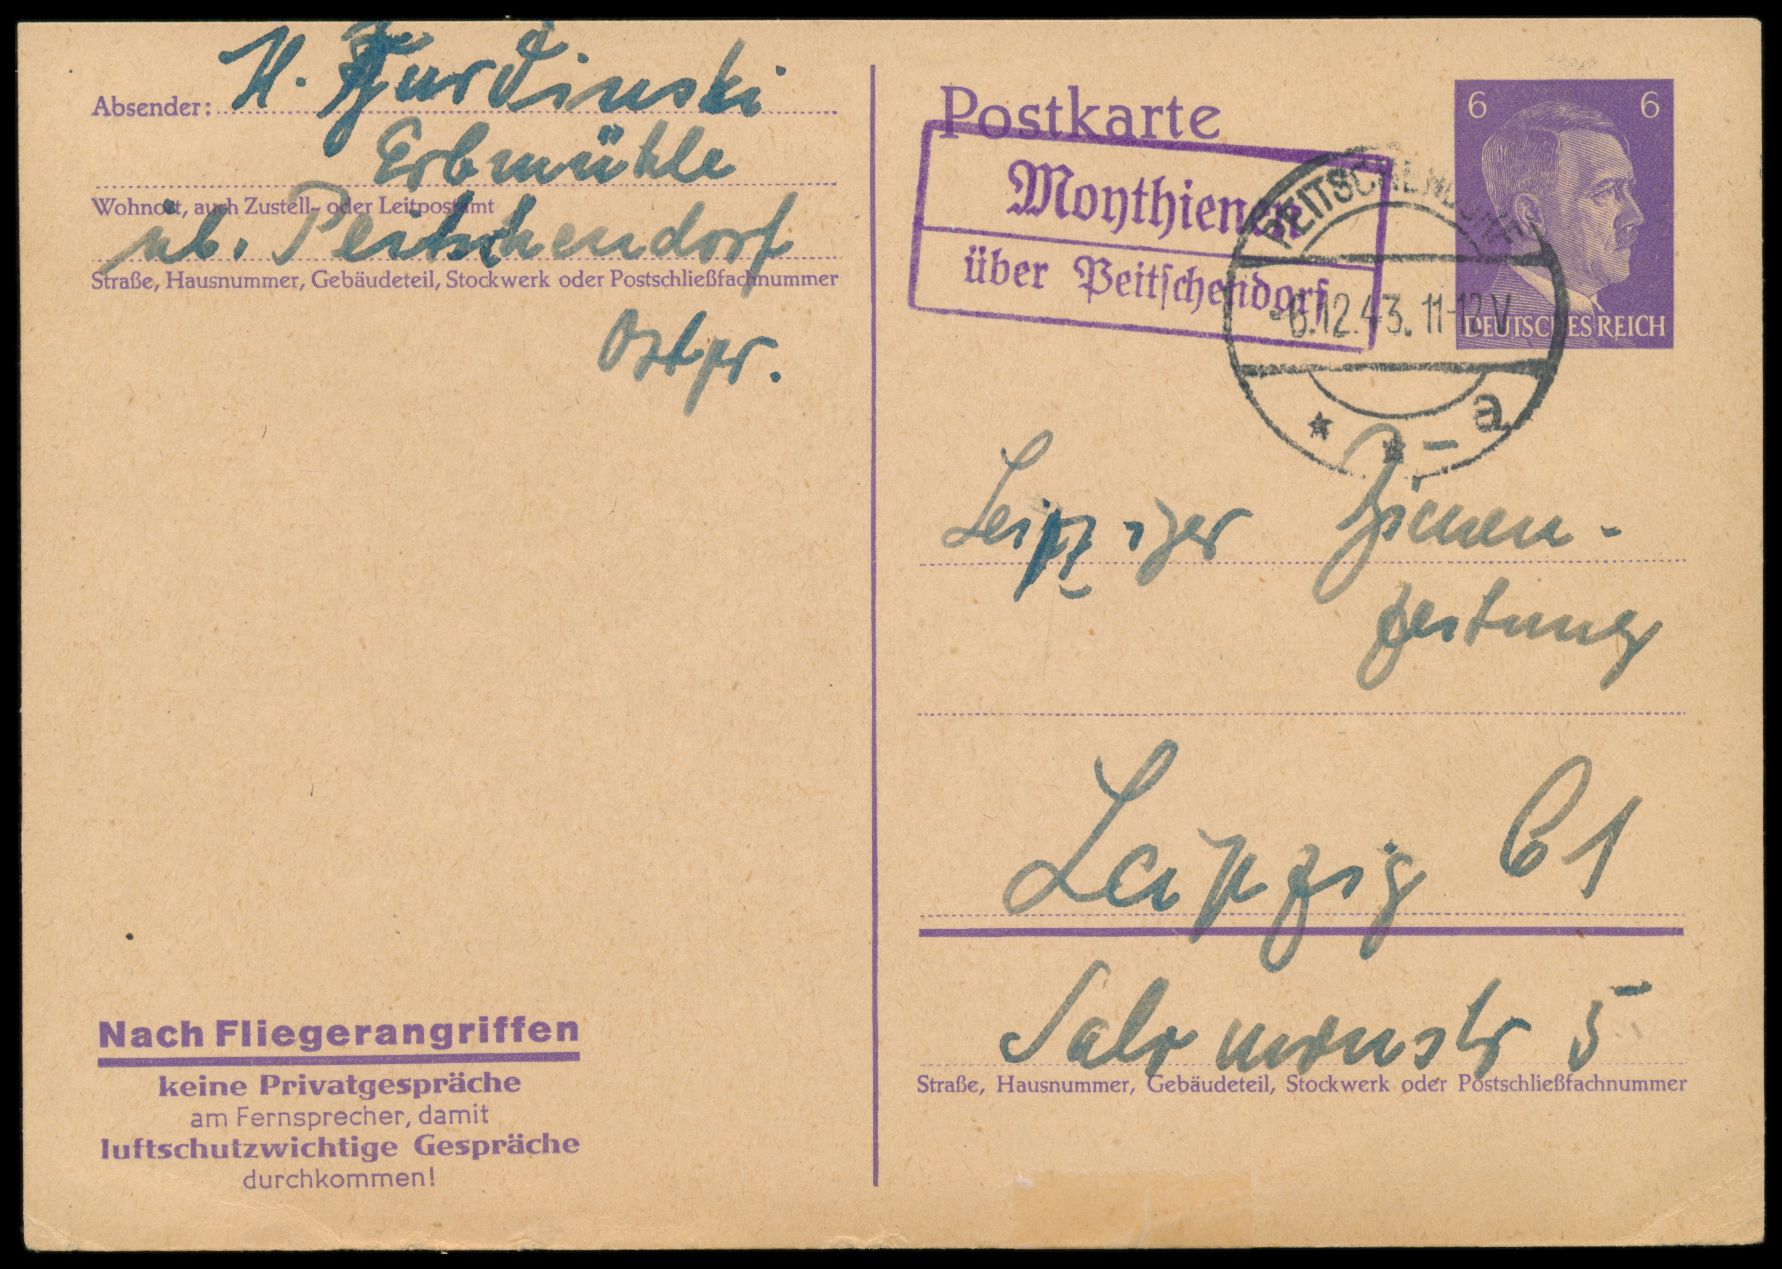 Absender: H. Gurdinski
Erbmühle
Wohnort, auch Zustell- oder Leitpostamt
üb. Peitschendorf
Straße, Hausnummer, Gebäudeteil, Stockwerk oder Postschließfachnummer
Ostpr.
Nach Fliegerangriffen
keine Privatgespräche
am Fernsprecher, damit
luftschutzwichtige Gespräche
durchkommen!
Postkarte
6 6
DEUTSCHES REICH
Moythienen
über Peitschendorf
PEITSCHENDORF
-6.12.43. 11-12V
* * a
Leipziger Bienen-
zeitung
Leipzig C1
Salomonstr 5
Straße, Hausnummer, Gebäudeteil, Stockwerk oder Postschließfachnummer